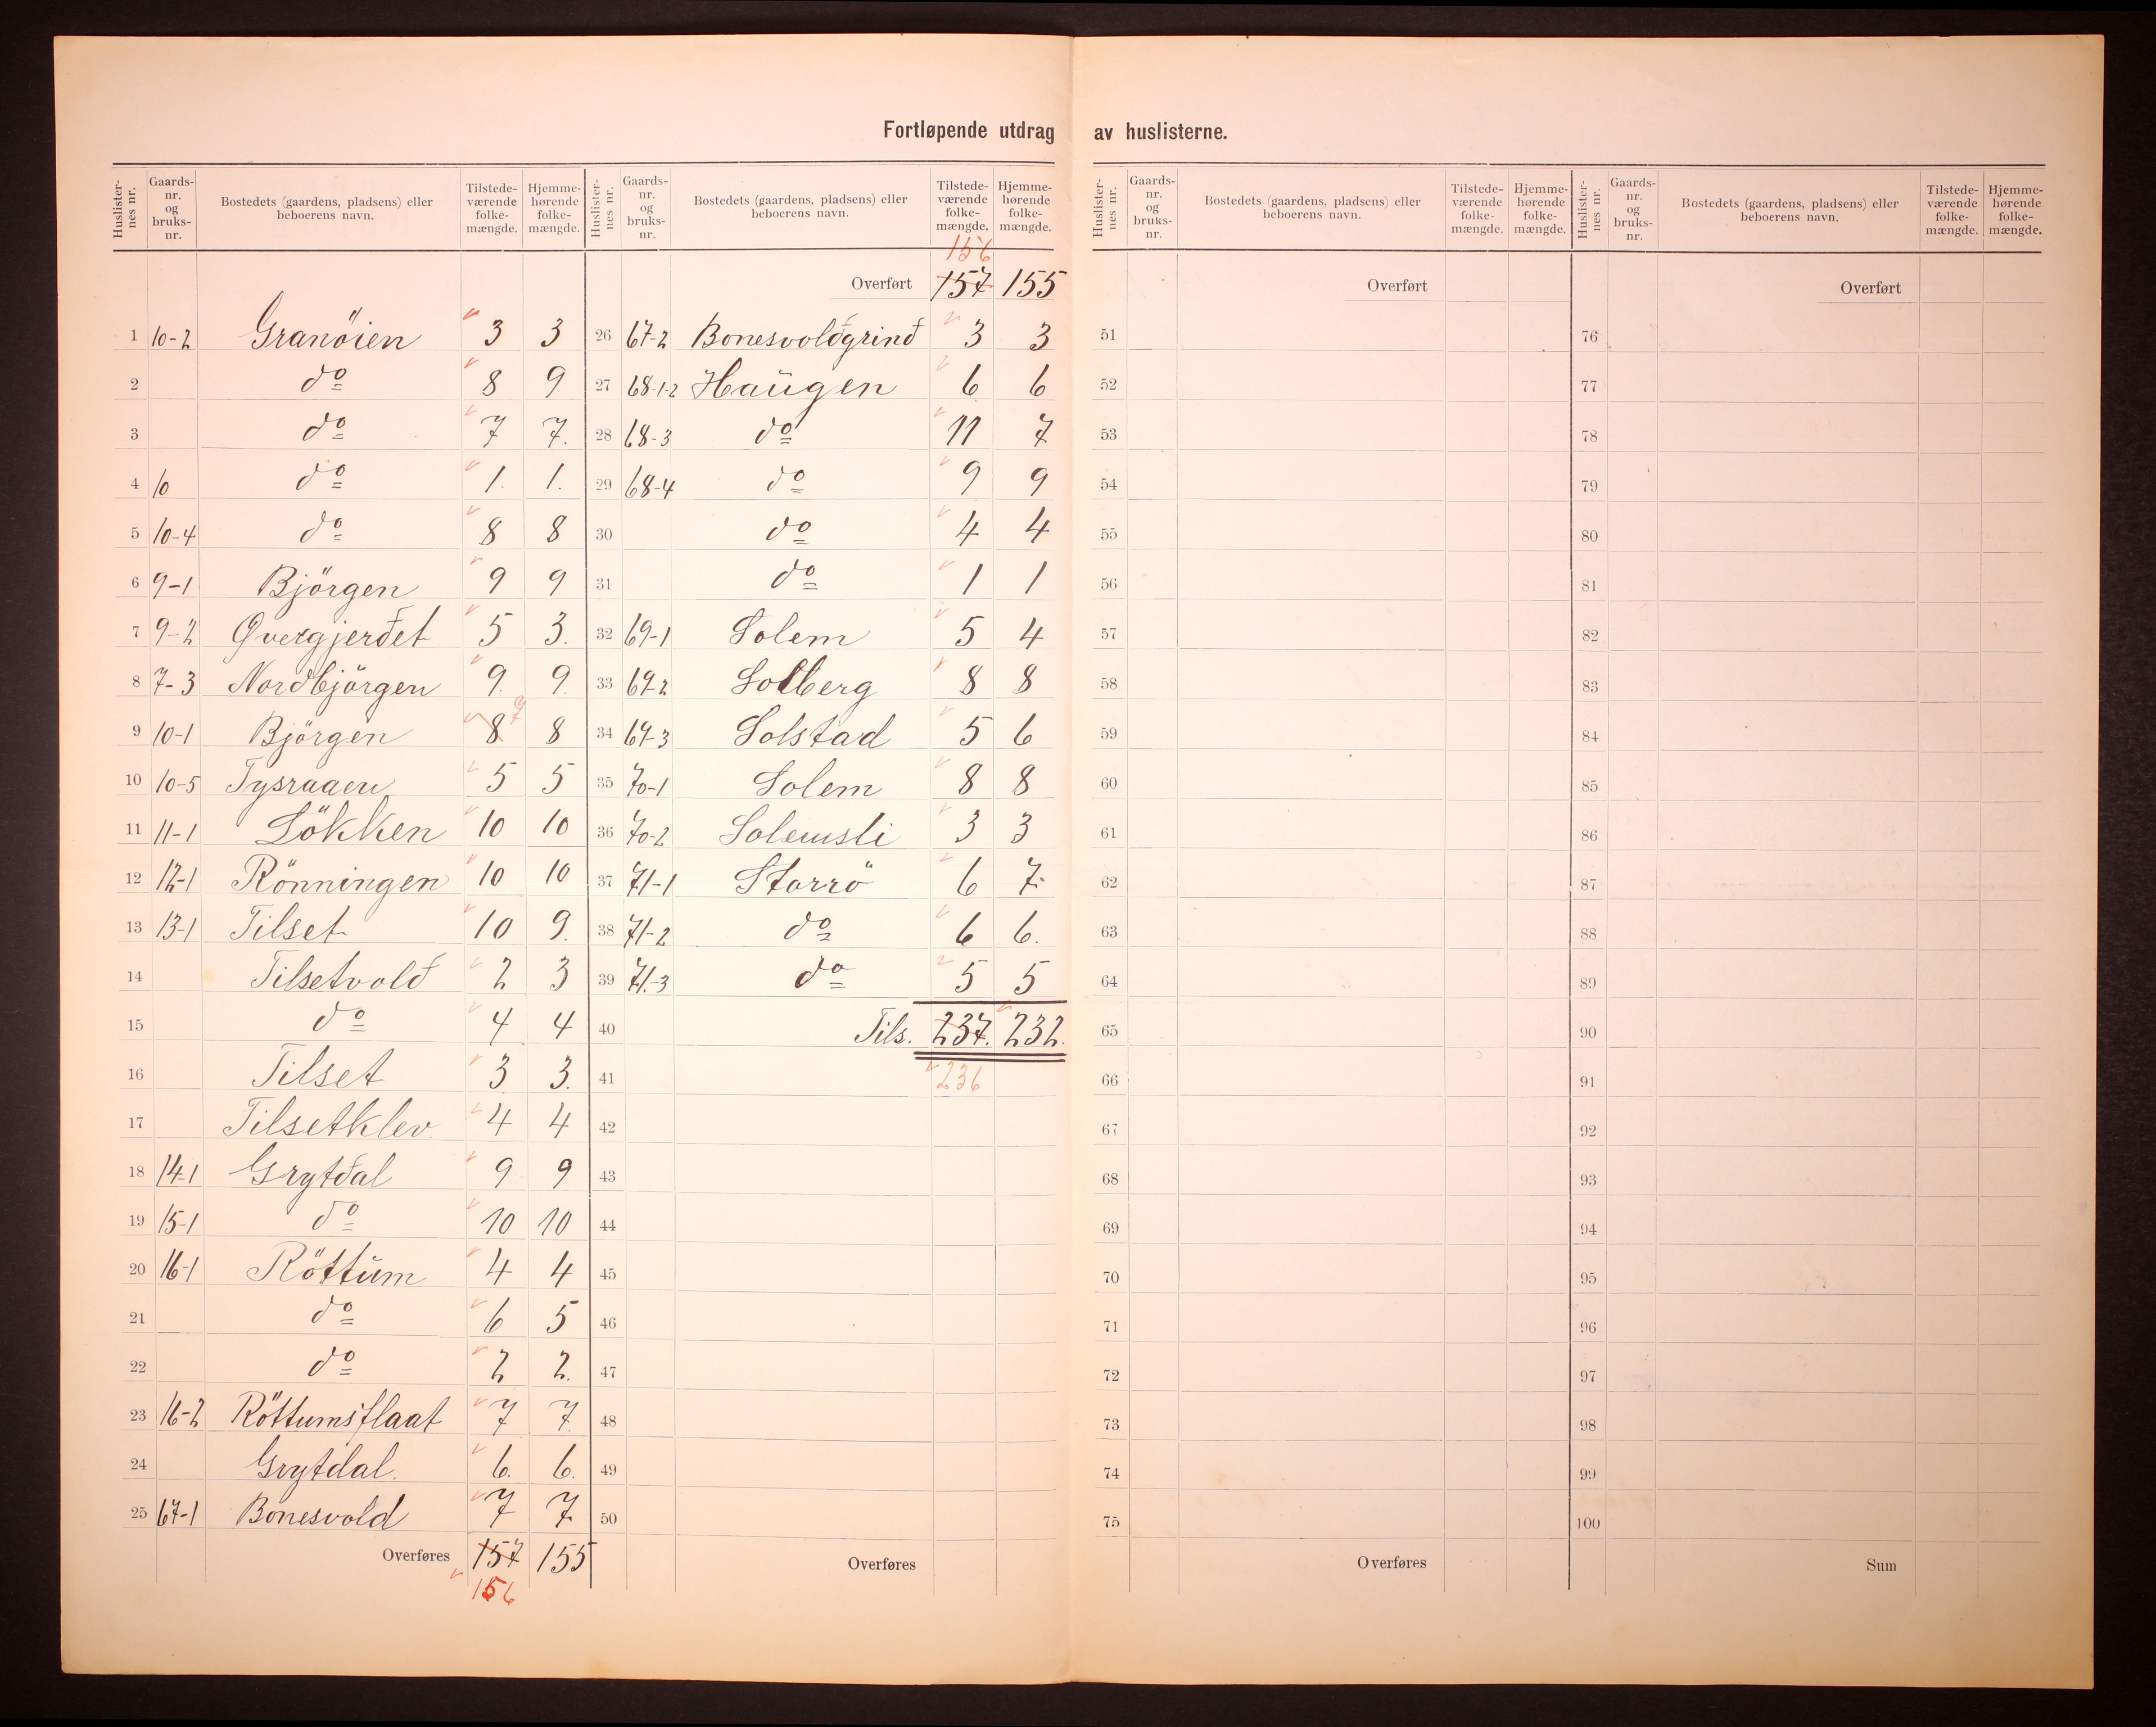 Fortløpende utdrag av huslisterne.
Huslisternes nr. Gaards-nr. og bruks-nr. Bostedets (gaardens, pladsens) eller beboerens navn. Tilstedeværende folkemængde. Hjemmehørende folkemængde.
1 10-2 Granöien 3 3
2 do 8 9
3 do 7 7.
4 10 do 1. 1.
5 10-4 do 8 8
6 9-1 Björgen 9 9
7 9-2 Qvergjerdet 5 3.
8 7-3 Nordbjörgen 9. 9
9 10-1 Björgen 8 7 8
10 10-5 Tysraaen 5 5
11 11-1 Lökken 10 10
12 12-1 Rönningen 10 10
13 13-1 Tilset 10 9.
14 Tilsetvold 2 3
15 do 4 4
16 Tilset 3 3.
17 Tilsetklev 4 4
18 14-1 Grytdal 9 9
19 15-1 do 10 10
20 16-1 Röttum 4 4
21 do 6 5
22 do 2 2.
23 16-2 Röttumsflaat 7 7.
24 Grytdal. 6. 6.
25 67-1 Bonesvold 7 7
Overføres 157 155
156
Huslisternes nr. Gaards-nr. og bruks-nr. Bostedets (gaardens, pladsens) eller beboerens navn. Tilstedeværende folkemængde. Hjemmehørende folkemængde.
156
Overført 157 155
26 67-2 Bonesvoldgrind 3 3
27 68-1-2 Haugen 6 6
28 68-3 do 11 7
29 68-4 do 9 9
30 do 4 4
31 do 1 1
32 69-1 Solem 5 4
33 69-2 Solberg 8 8
34 69-3 Solstad 5 6
35 70-1 Solem 8 8
36 70-2 Solemsli 3 3
37 71-1 Storrö 6 7.
38 71-2 do 6 6.
39 71.-3 do 5 5
40 Tils. 237. 232.
41 236
42
43
44
45
46
47
48
49
50
Overføres
Huslisternes nr. Gaards-nr. og bruks-nr. Bostedets (gaardens, pladsens) eller beboerens navn. Tilstedeværende folkemængde. Hjemmehørende folkemængde.
Overført
51
52
53
54
55
56
57
58
59
60
61
62
63
64
65
66
67
68
69
70
71
72
73
74
75
Overføres
Huslisternes nr. Gaards-nr. og bruks-nr. Bostedets (gaardens, pladsens) eller beboerens navn. Tilstedeværende folkemængde. Hjemmehørende folkemængde.
Overført
76
77
78
79
80
81
82
83
84
85
86
87
88
89
90
91
92
93
94
95
96
97
98
99
100
Sum